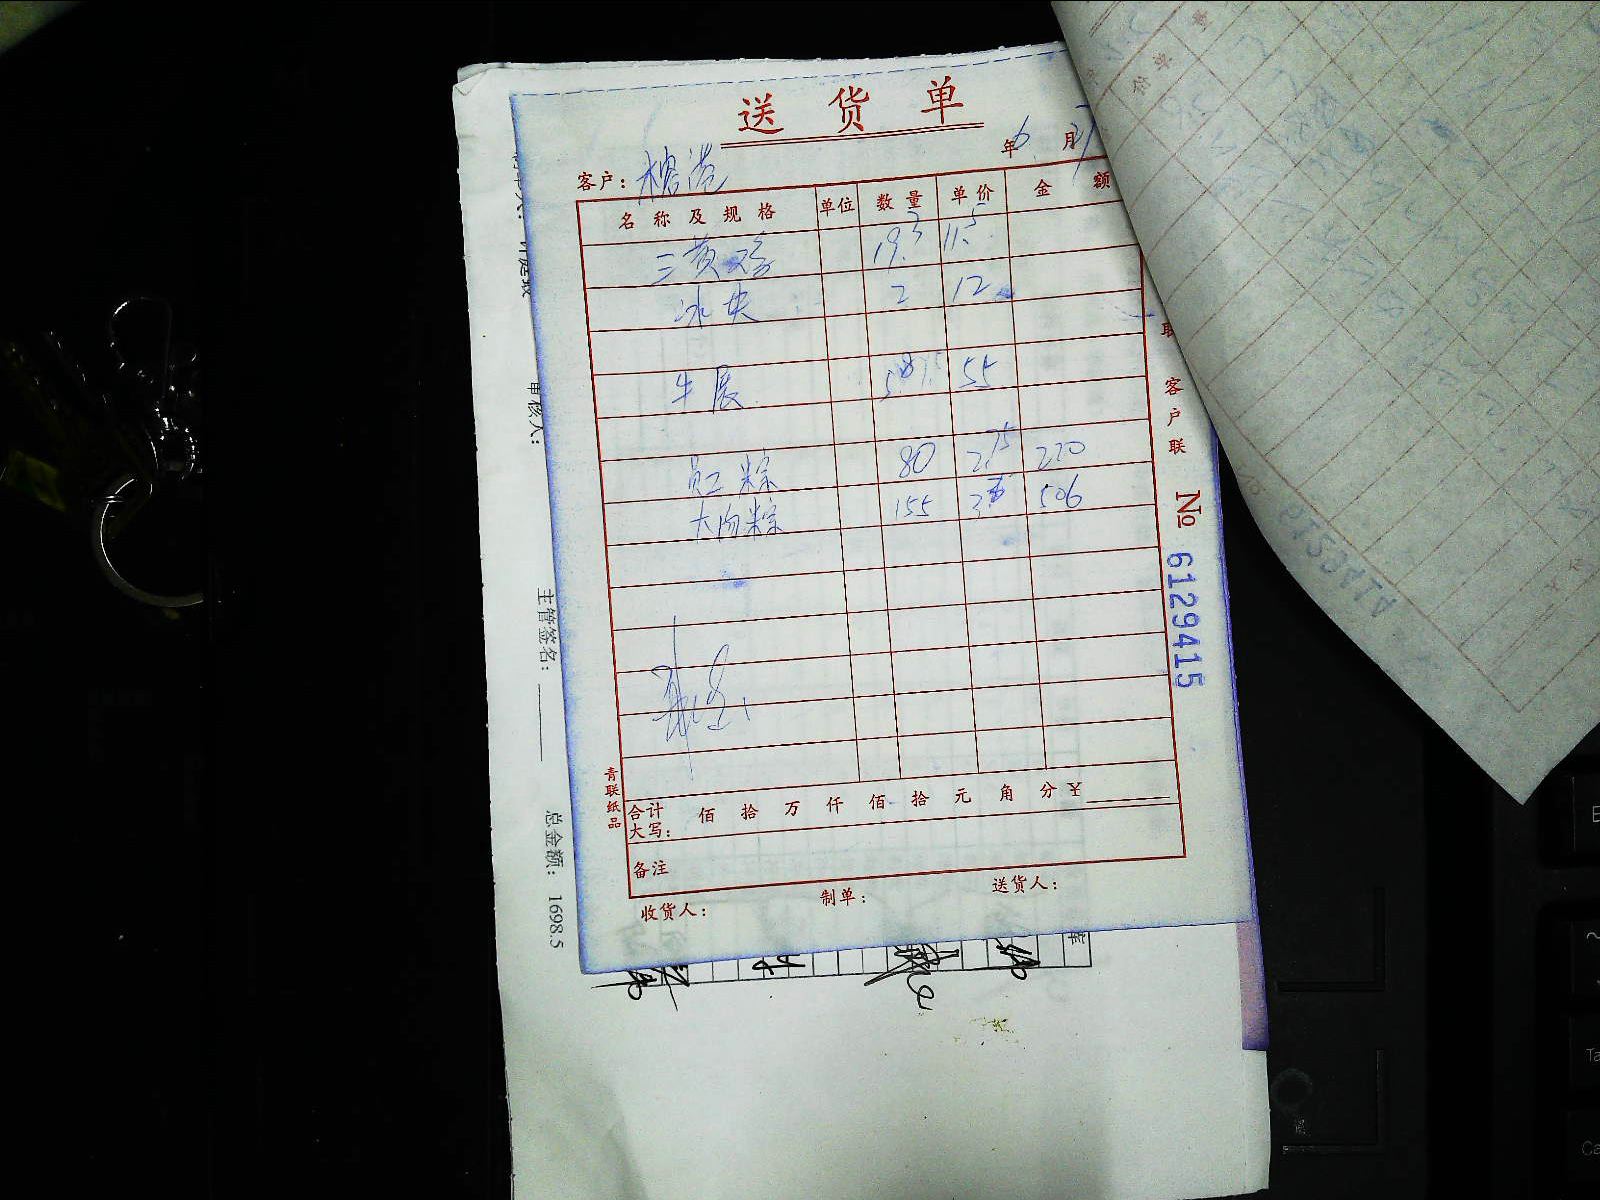 送货单
年6月
客户：榕港
名称及规格 单位 数量 单价 金额
三黄鸡 19.3 11.5
冰块 2 12
牛展 55
员工粽 80 2.75 220
大肉粽 155 506
合计大写： 佰 拾 万 仟 佰 拾 元 角 分 ¥
备注
收货人： 制单： 送货人：
青联纸品
客户联
№ 6129415
审核人：
主管签名：
总金额： 1698.5